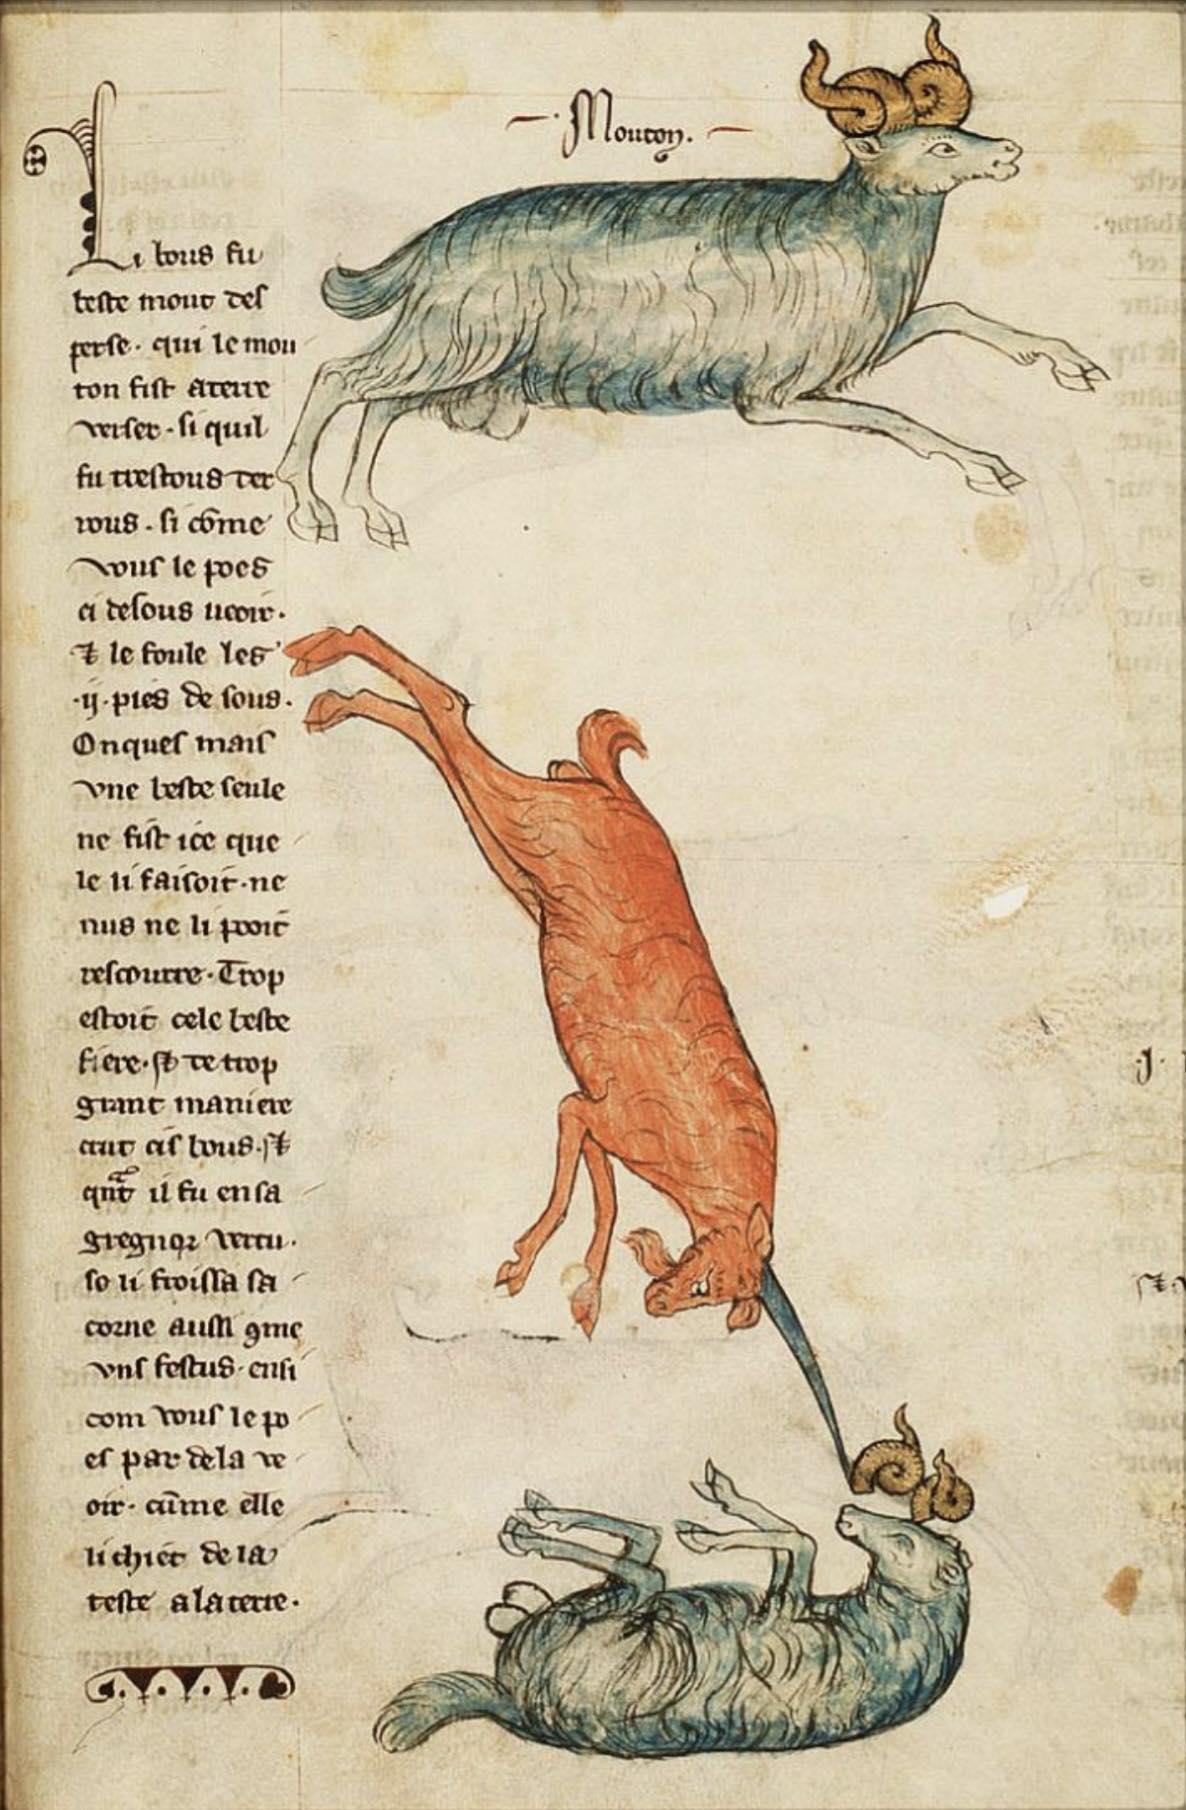 Mouton.
Li bous fu
beste mout des
perse. qui le mou
ton fist aterre
verser. si quil
fu trestous der
rous. si cõme
vous le poes
ci desous ueoir.
⁊ le foule les
.ij. pies de sous.
Onques mais
vne beste seule
ne fist ice que
le li faisoit. ne
nus ne li pooit
rescourre. Trop
estoit cele beste
fiere. ⁊ de trop
grant maniere
cis bous. ⁊
qñt il fu en sa
gregnor vertu.
so li froissa sa
corne aussi ꝯme
vns festus. ensi
com vous le po
es par dela ve
oir. cũme elle
li chiet de la
teste a la terre.
.J.